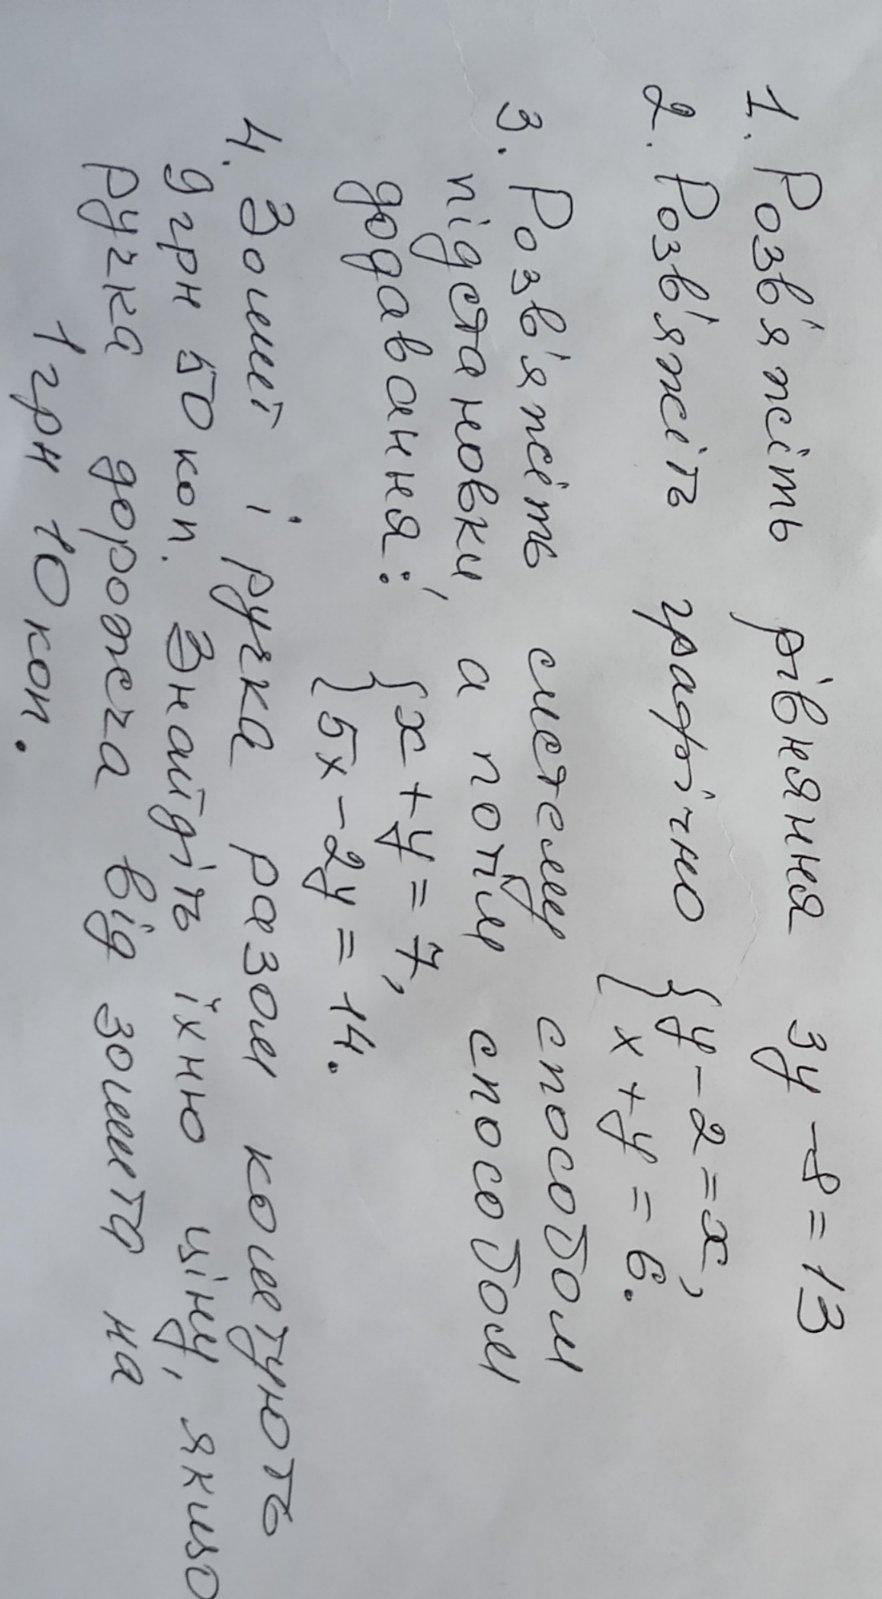 1. Розв'яжіть рівняння 3y-8=13
2. Розв'яжіть графічно { y-2=x,
x+y=6.
3. Розв'яжіть систему способом
підстановки, а потім способом
додавання: { x+y=7,
5x-2y=14.
4. Зошит і ручка разом коштують
9 грн 50 коп. Знайдіть їхню ціну, якщо
ручка дорожча від зошита на
1 грн 10 коп.